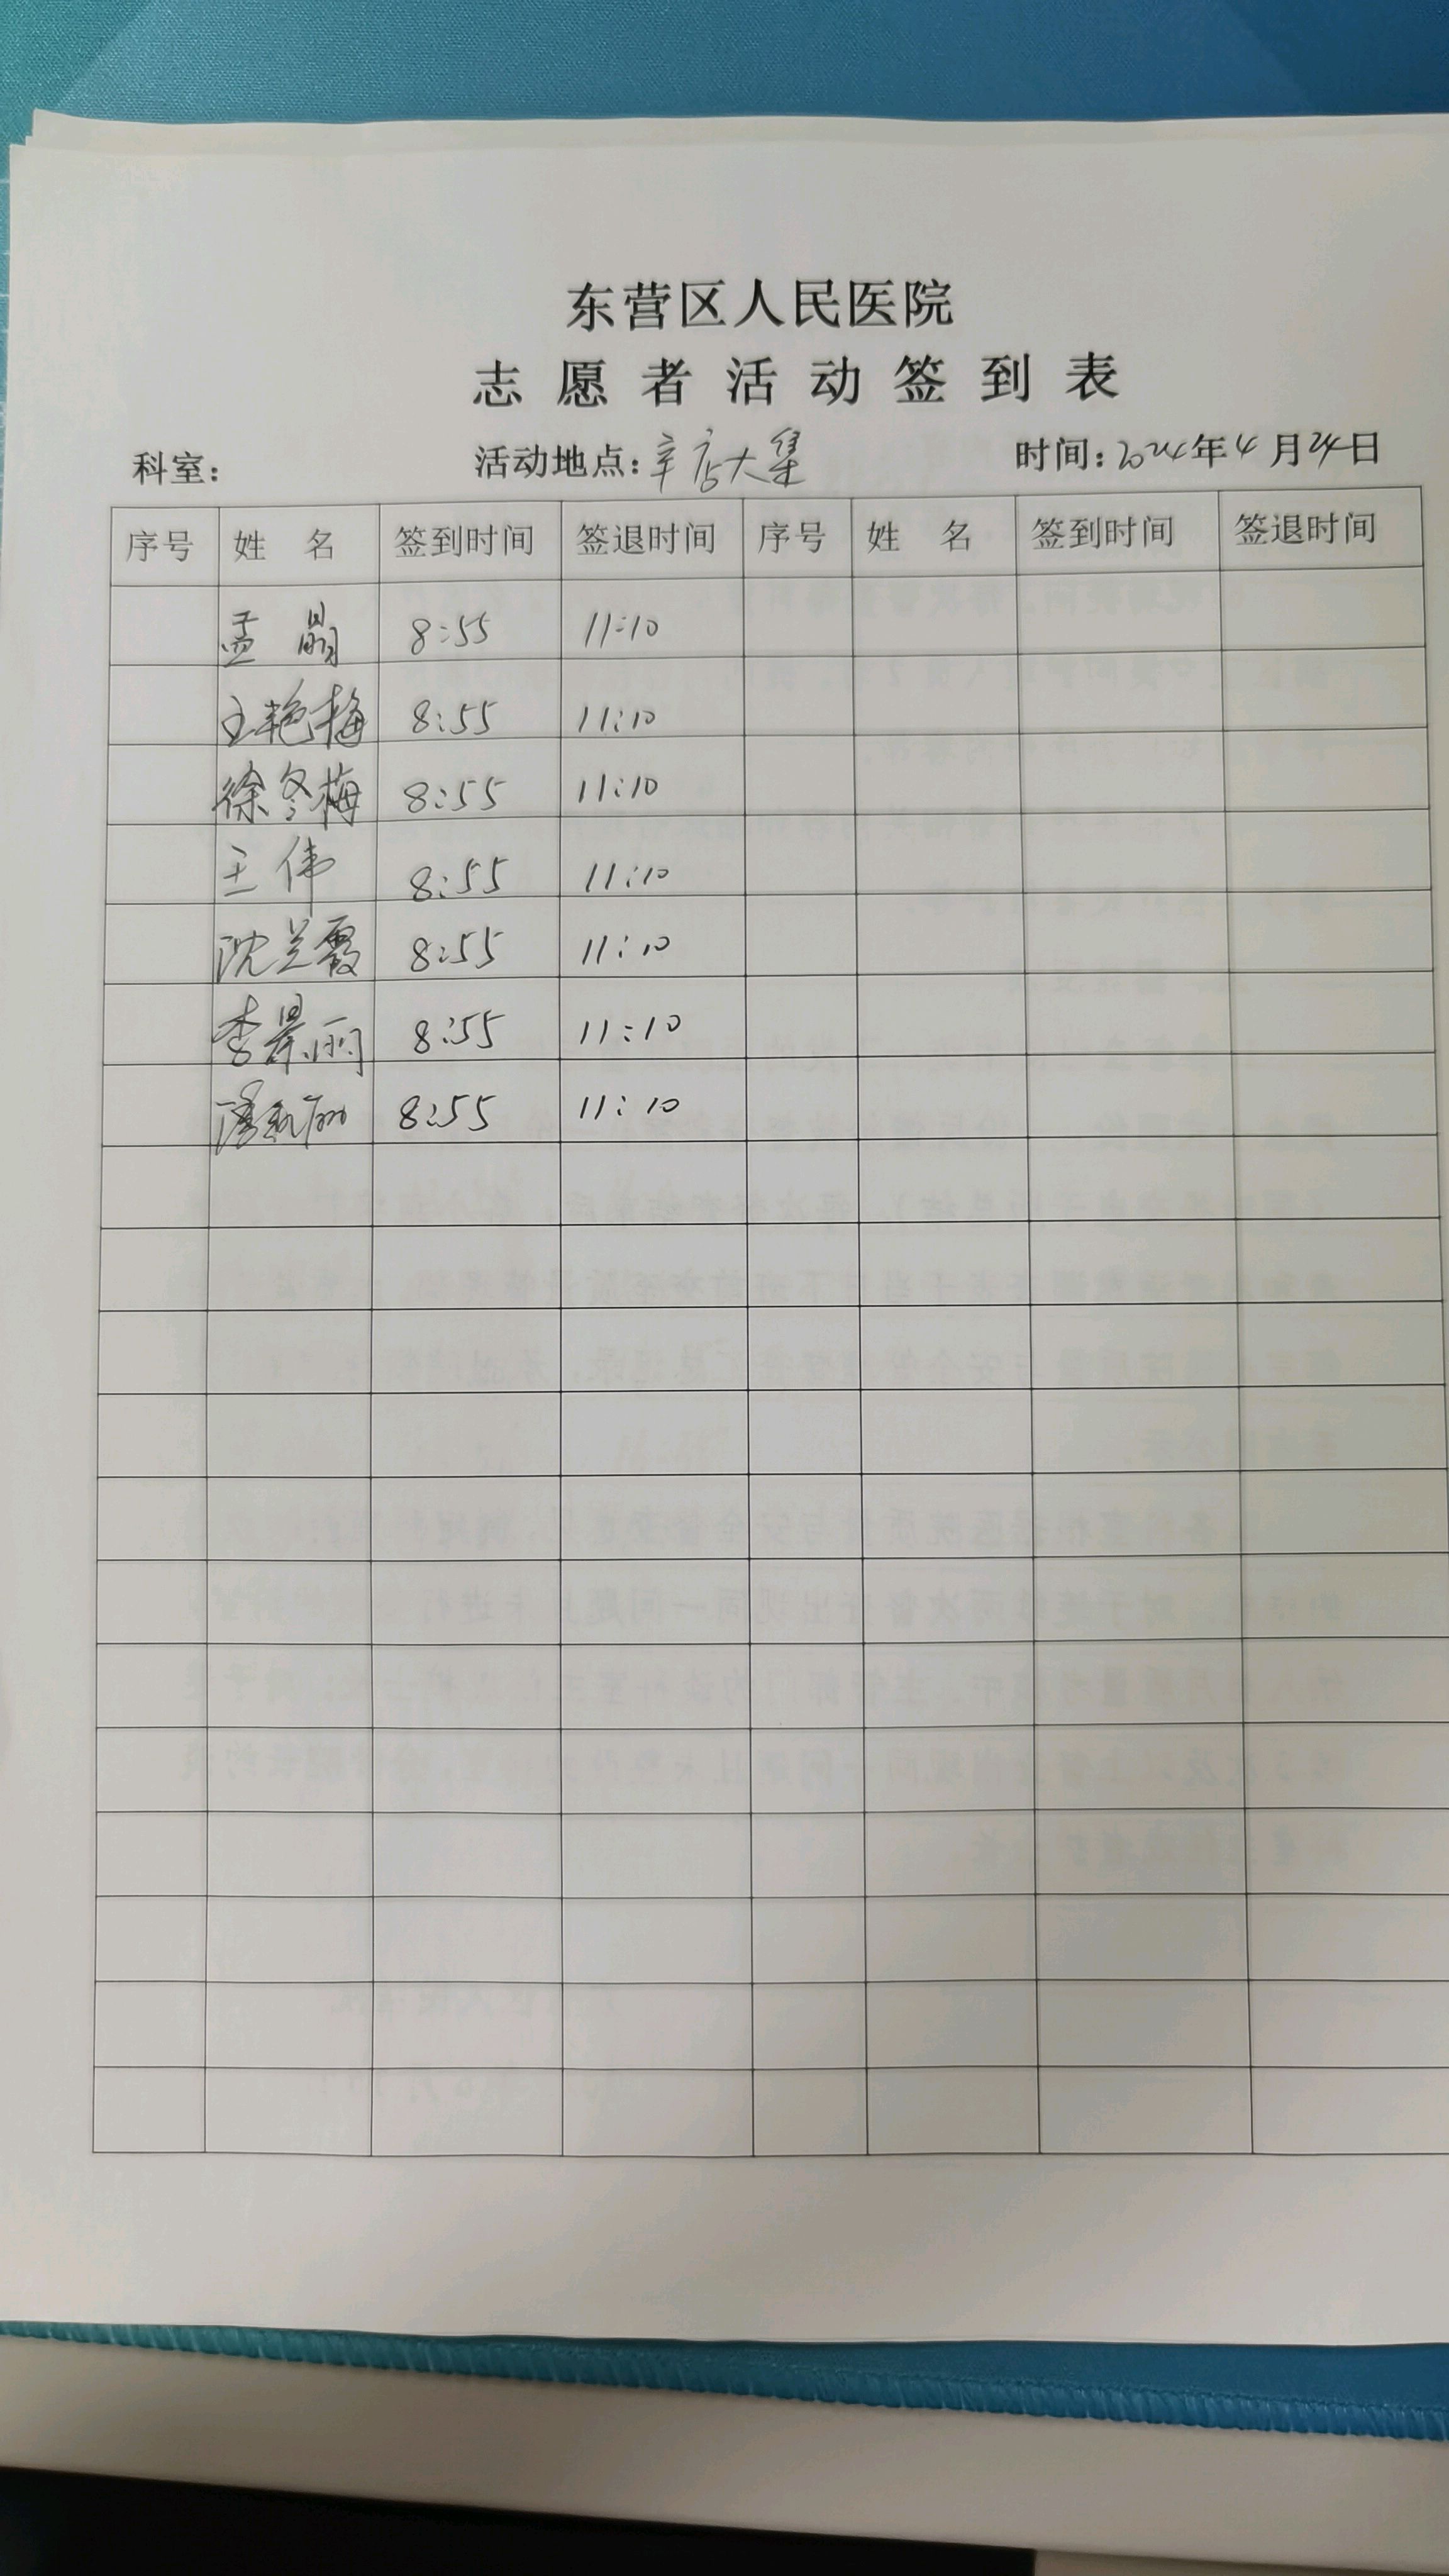 东营区人民医院
志愿者活动签到表
科室： 活动地点：辛店大集 时间：2024年4月24日
序号 姓名 签到时间 签退时间 序号 姓名 签到时间 签退时间
孟晶 8:55 11:10
王艳梅 8:55 11:10
徐冬梅 8:55 11:10
王伟 8:55 11:10
沈兰霞 8:55 11:10
李景丽 8:55 11:10
8:55 11:10